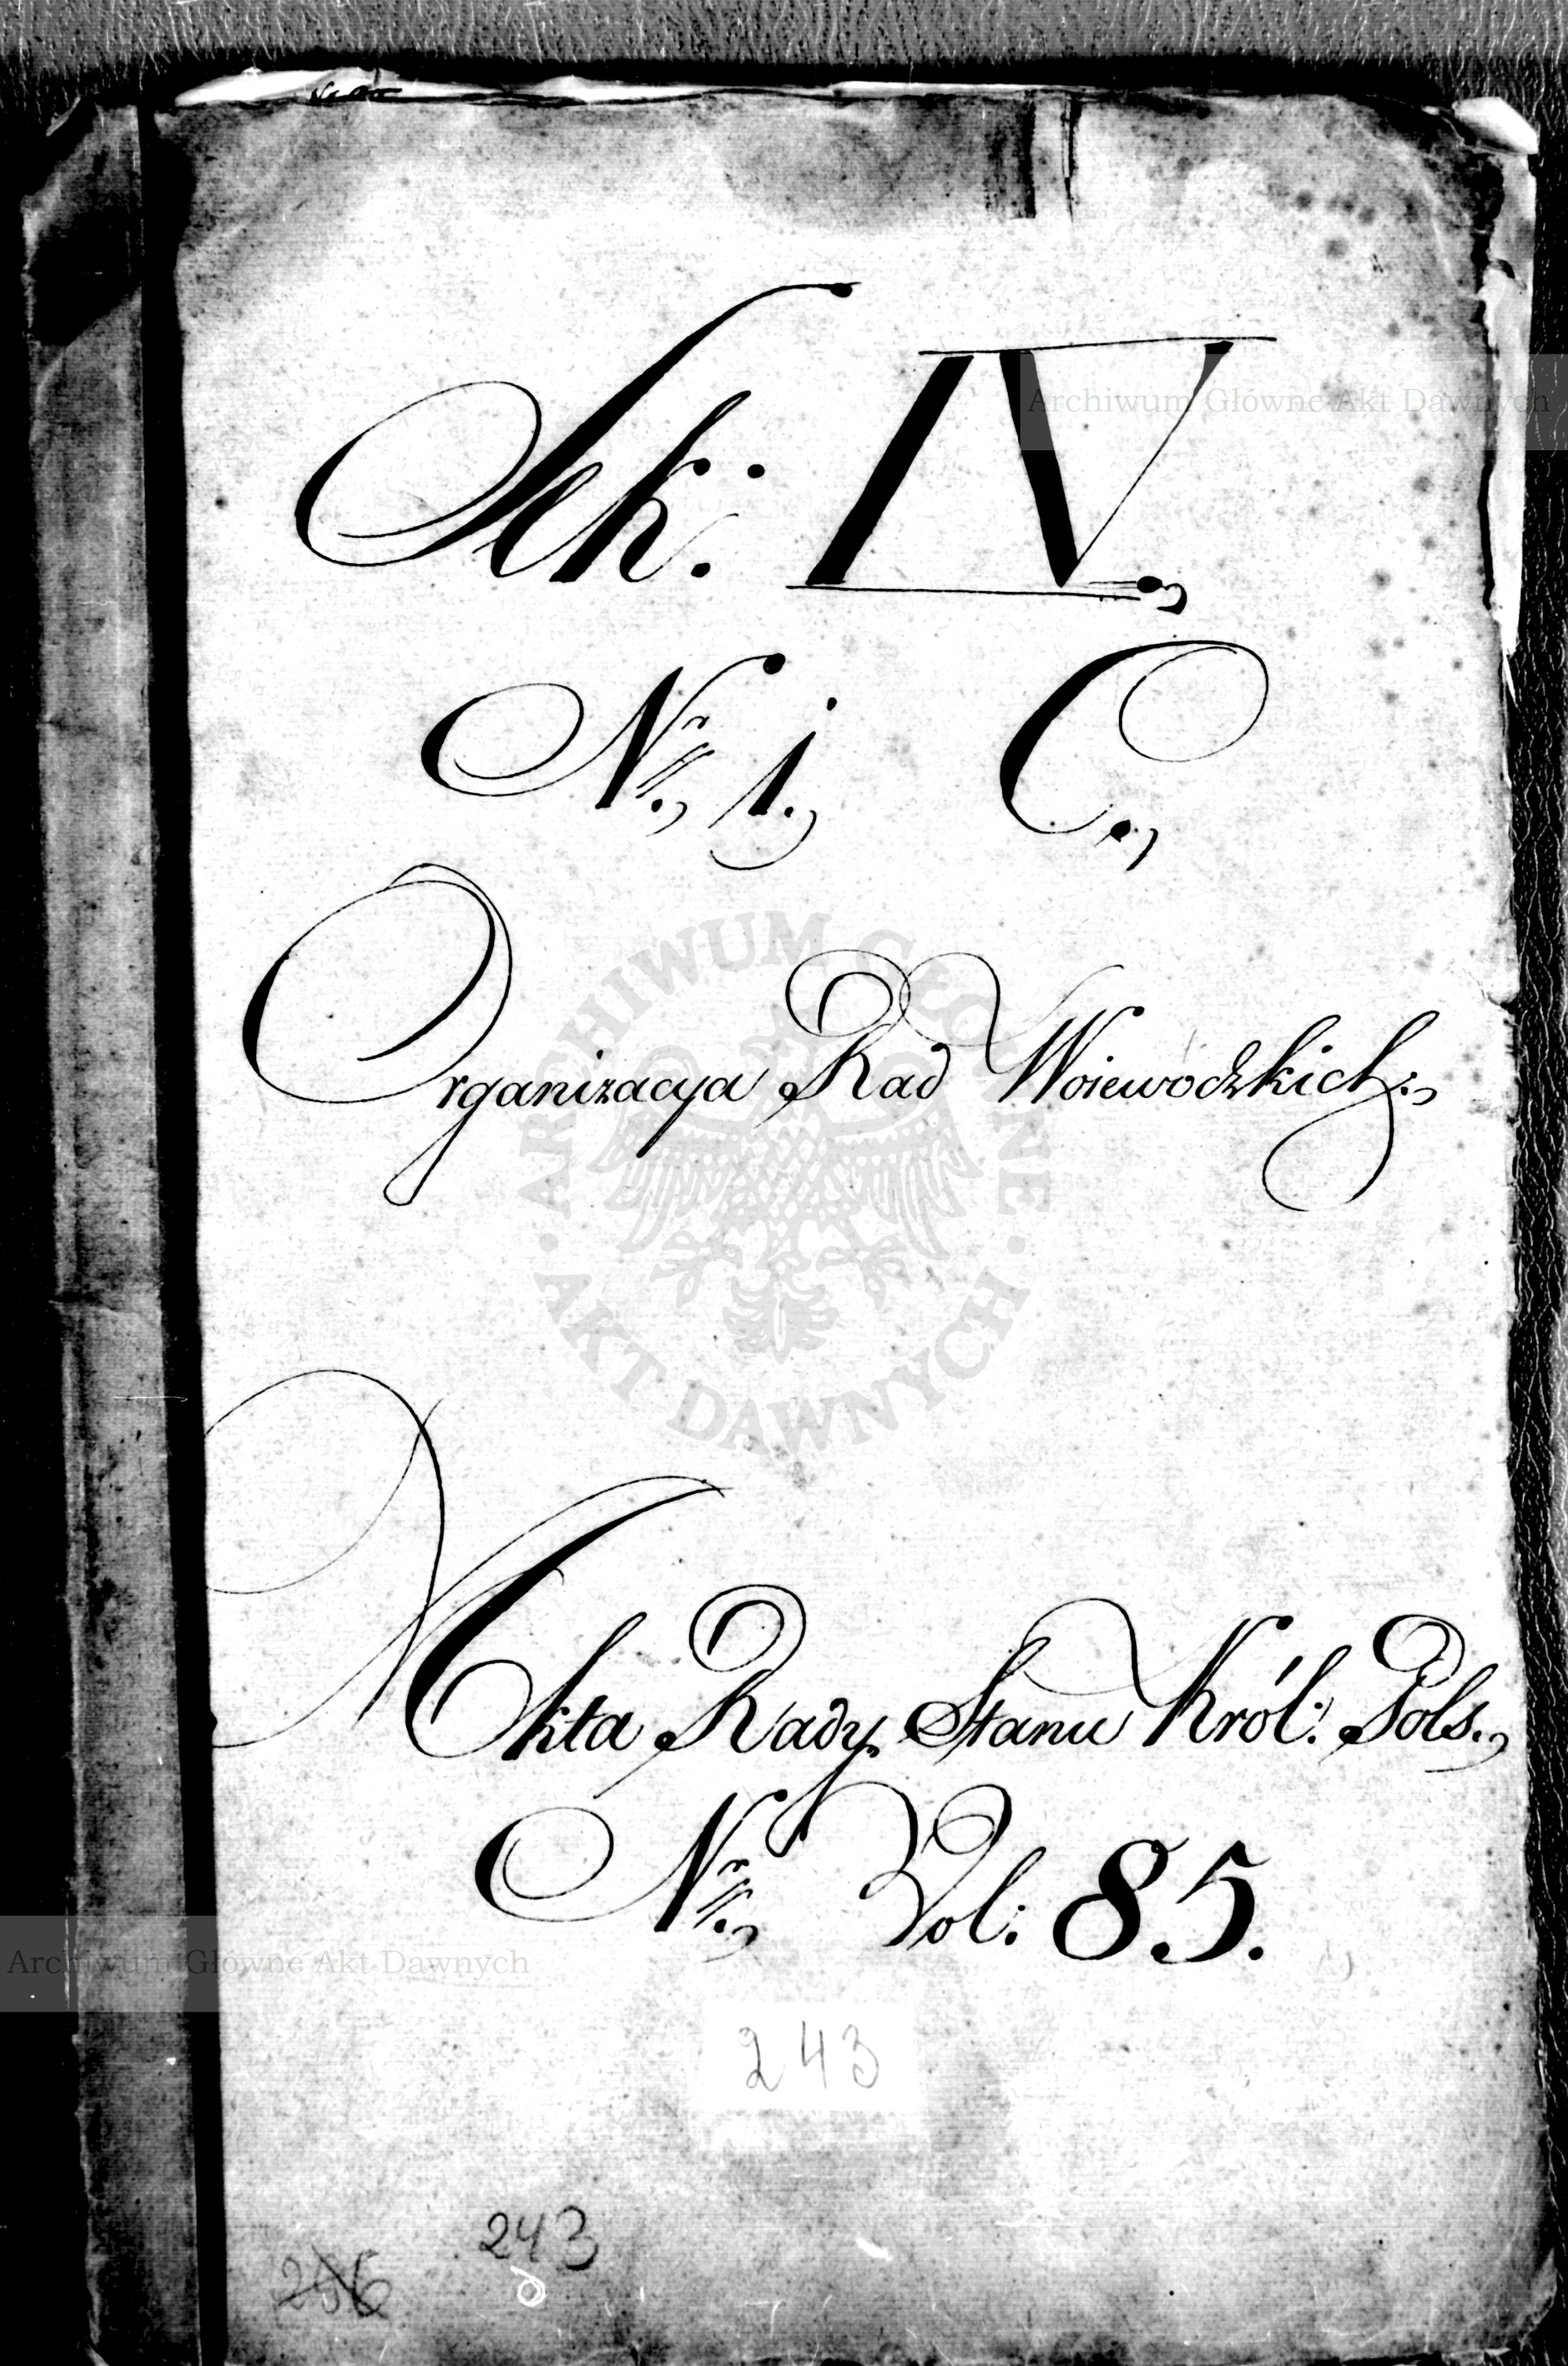 Archiwum Główne Akt Dawnych
Sek: IV.,
Nr., 1., C.,
Organizacya Rad Woiewodzkich.,
ARCHIWUM GŁÓWNE • AKT DAWNYCH •
Akta Rady Stanu Król: Pols.,
Nr., Vol: 85.
Archiwum Główne Akt Dawnych
243
243